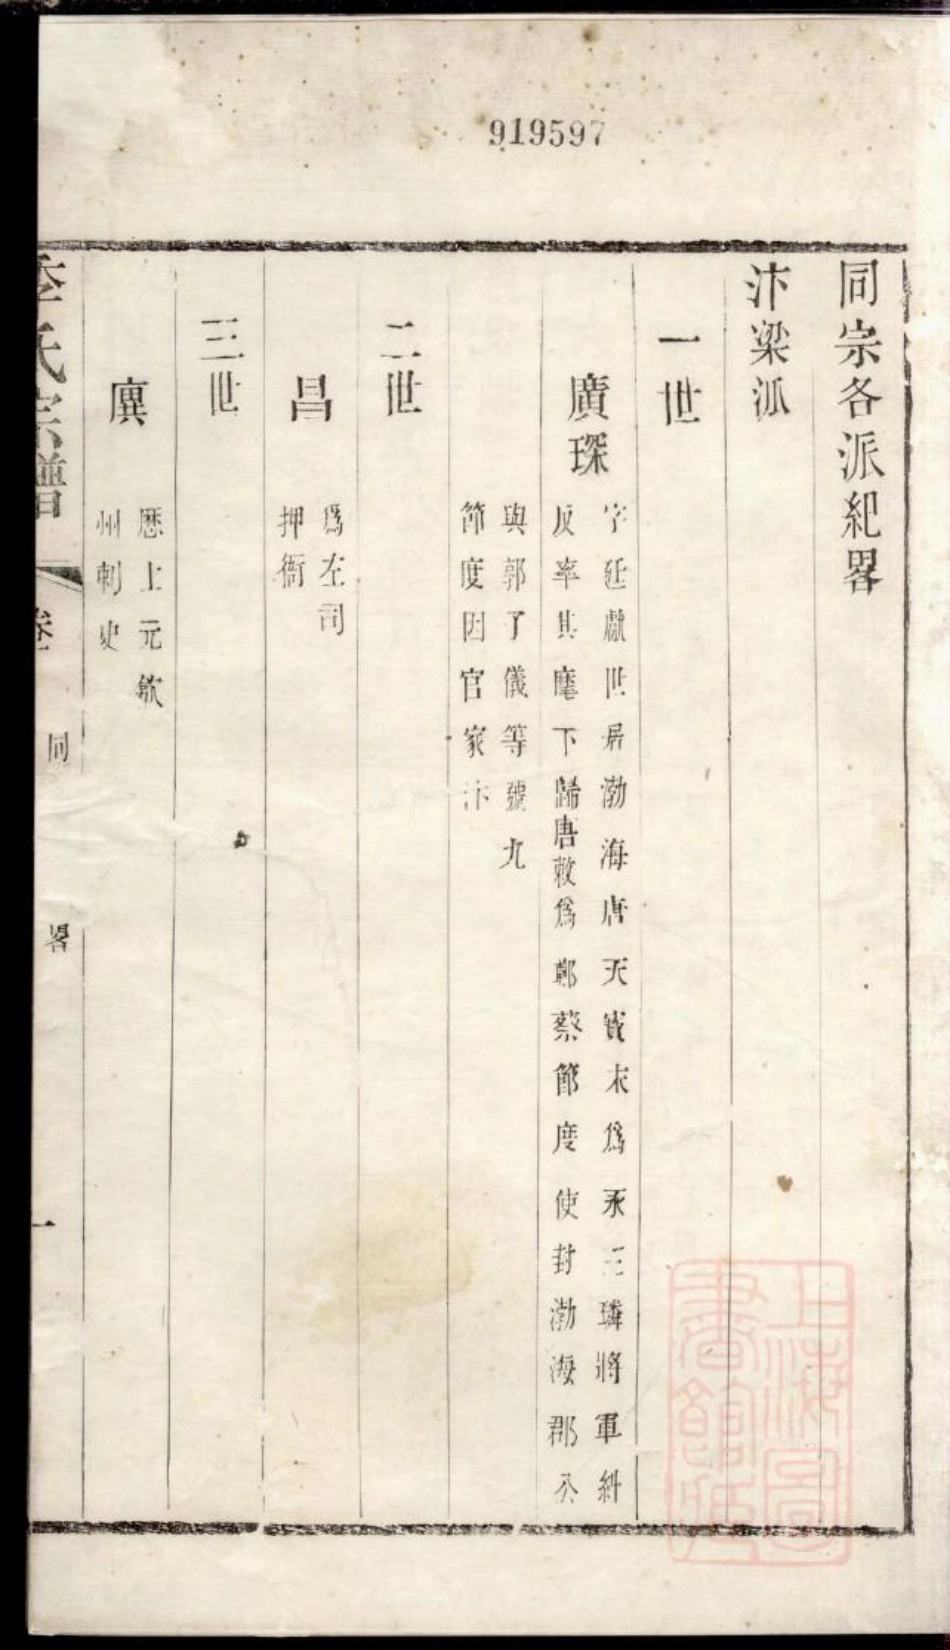 919597
同宗各派紀畧
汴梁派
一世
廣琛
字延獻世居渤海唐天寶末爲永王璘將軍糾
反率其麾下歸唐敕爲鄭蔡節度使封渤海郡公
與郭了儀等號九
節度因官家汴
二世
昌
爲左司
押衙
三世
廙
歷上元歙
州刺史
季氏宗譜
卷 同 畧 一
上海圖
書館藏